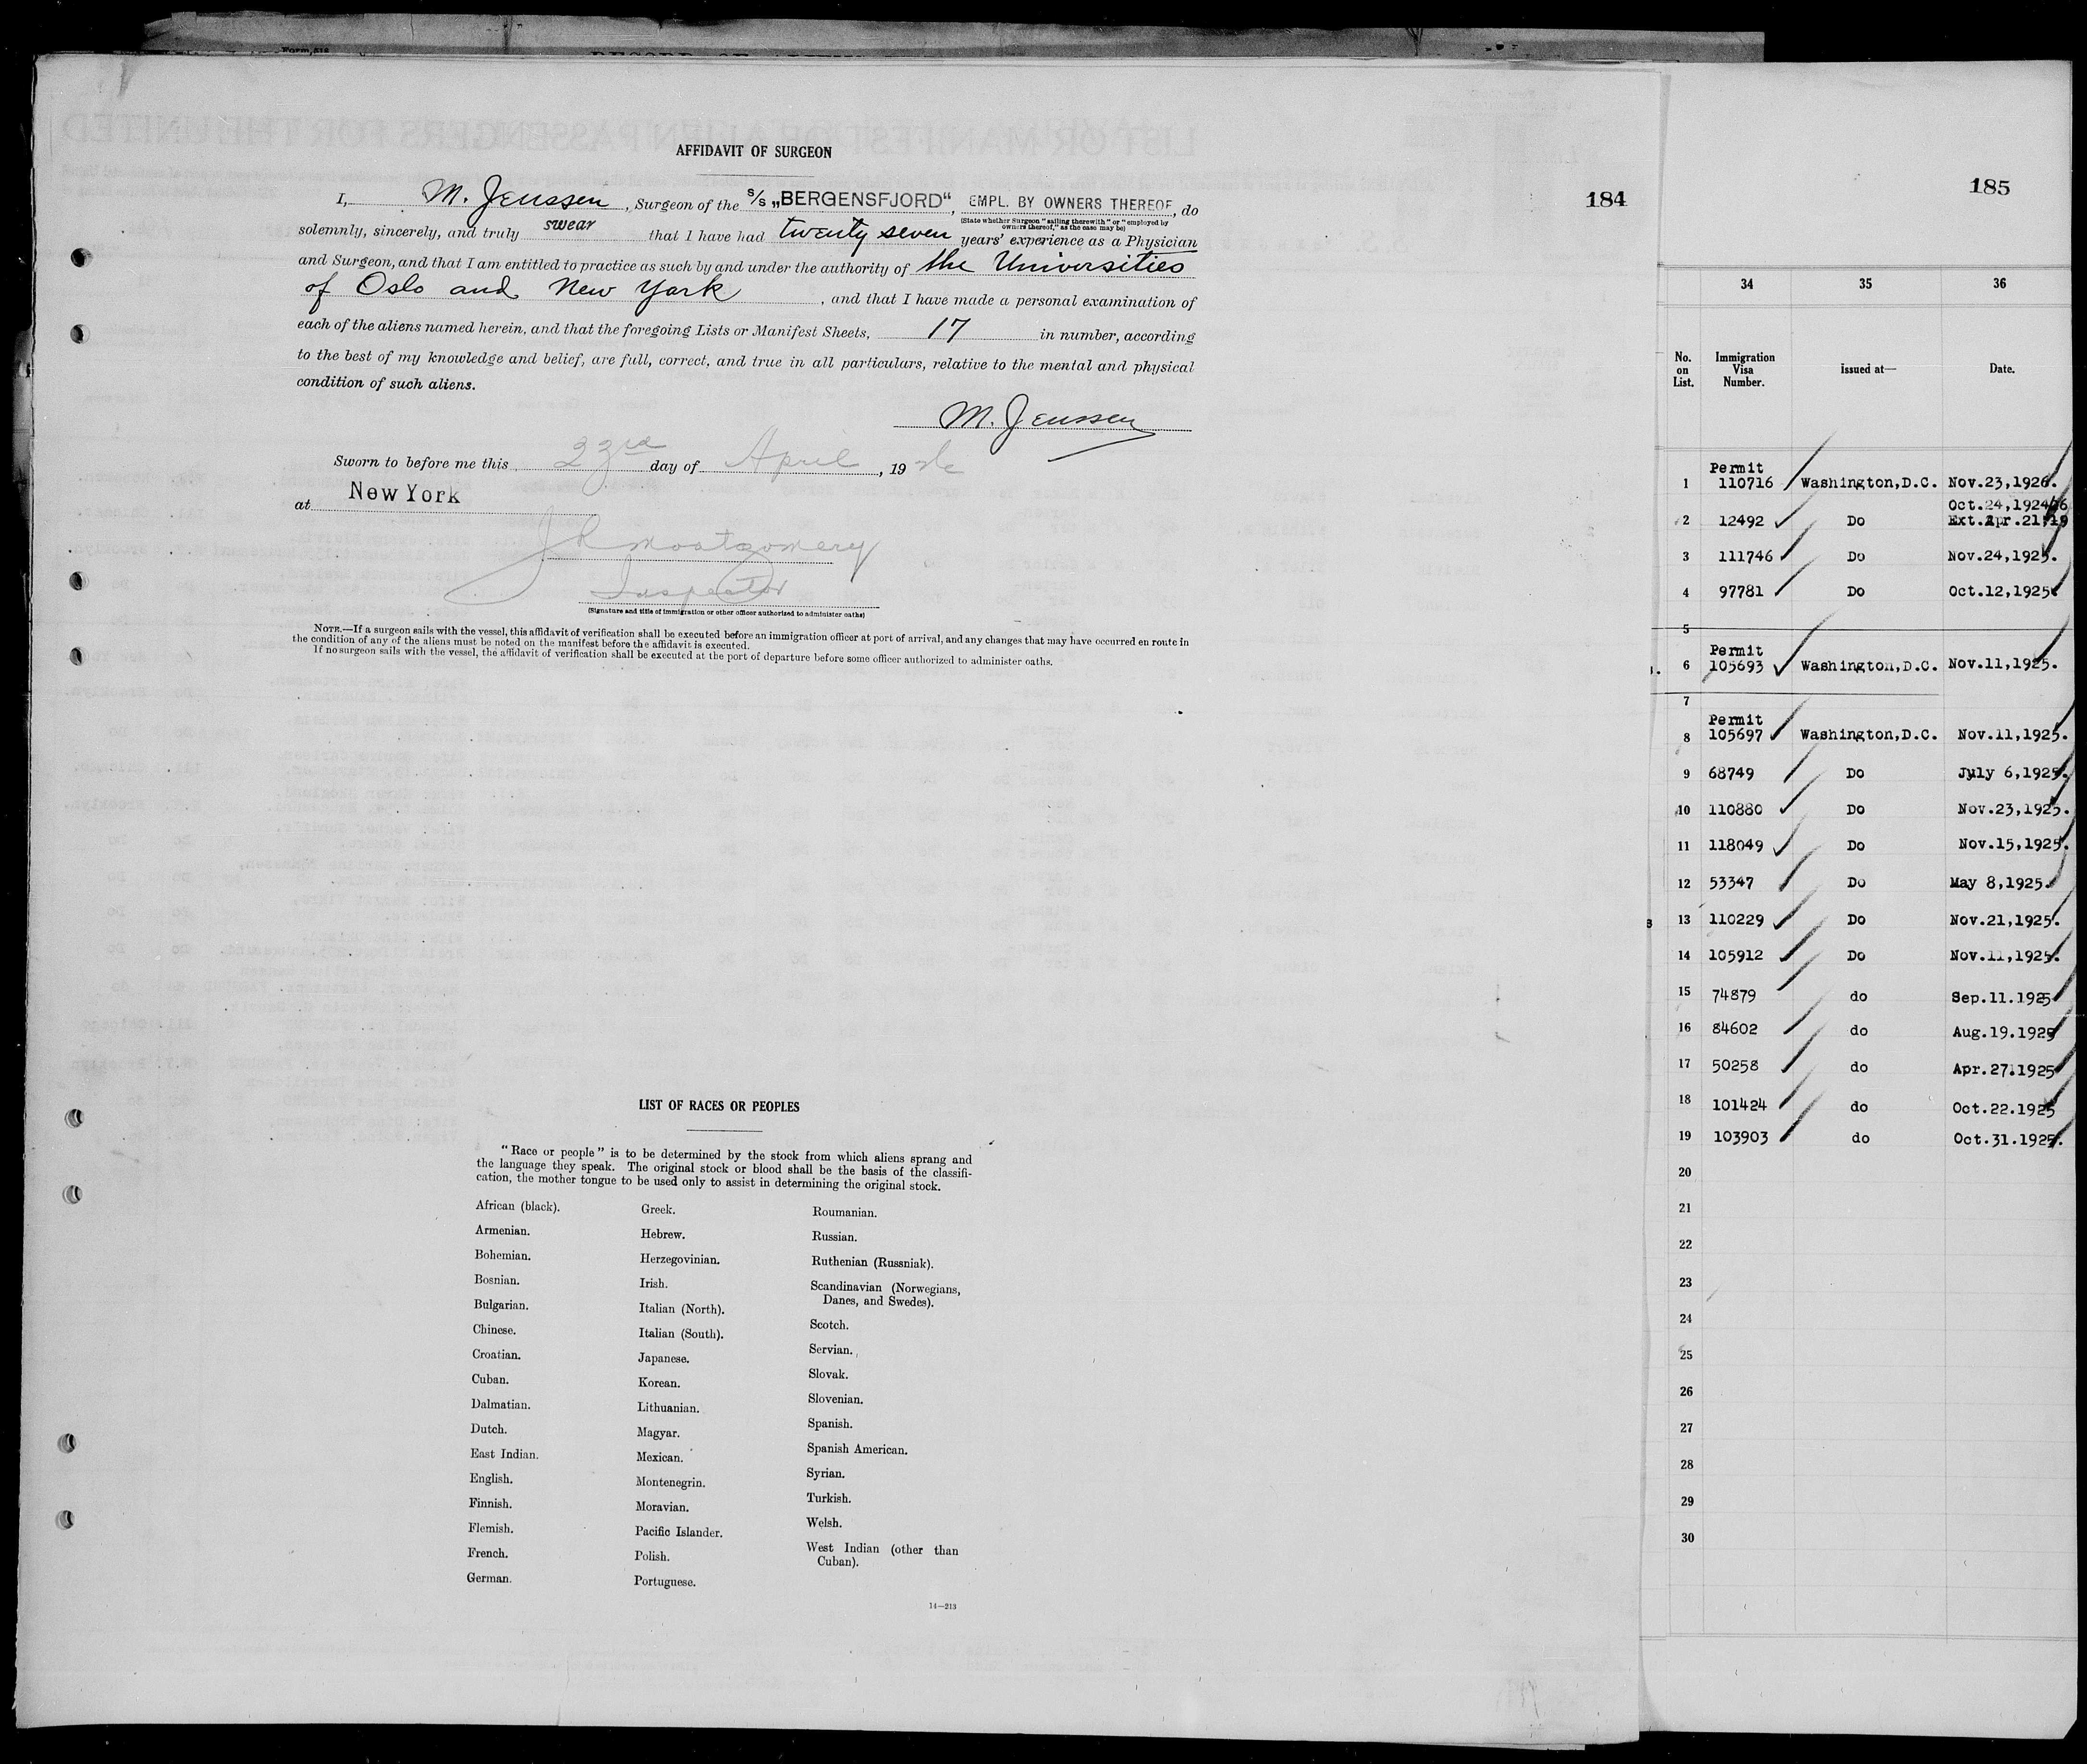 AFFIDAVIT OF SURGEON
184
I, M. Jenssen, Surgeon of the S/S „BERGENSFJORD“, EMPL. BY OWNERS THEREOF, do
(State whether Surgeon "sailing therewith" or "employed by owners thereof," as the case may be)
solemnly, sincerely, and truly swear that I have had twenty seven years' experience as a Physician
and Surgeon, and that I am entitled to practice as such by and under the authority of the Universities
of Oslo and New York, and that I have made a personal examination of
each of the aliens named herein, and that the foregoing Lists or Manifest Sheets, 17 in number, according
to the best of my knowledge and belief, are full, correct, and true in all particulars, relative to the mental and physical
condition of such aliens.
M. Jenssen
Sworn to before me this 23rd day of April, 1926
at New York
J R Montgomery
Inspector
(Signature and title of immigration or other officer authorized to administer oaths)
NOTE.—If a surgeon sails with the vessel, this affidavit of verification shall be executed before an immigration officer at port of arrival, and any changes that may have occurred en route in
the condition of any of the aliens must be noted on the manifest before the affidavit is executed.
If no surgeon sails with the vessel, the affidavit of verification shall be executed at the port of departure before some officer authorized to administer oaths.
LIST OF RACES OR PEOPLES
"Race or people" is to be determined by the stock from which aliens sprang and
the language they speak. The original stock or blood shall be the basis of the classifi-
cation, the mother tongue to be used only to assist in determining the original stock.
African (black).
Armenian.
Bohemian.
Bosnian.
Bulgarian.
Chinese.
Croatian.
Cuban.
Dalmatian.
Dutch.
East Indian.
English.
Finnish.
Flemish.
French.
German.
Greek.
Hebrew.
Herzegovinian.
Irish.
Italian (North).
Italian (South).
Japanese.
Korean.
Lithuanian.
Magyar.
Mexican.
Montenegrin.
Moravian.
Pacific Islander.
Polish.
Portuguese.
Roumanian.
Russian.
Ruthenian (Russniak).
Scandinavian (Norwegians,
Danes, and Swedes).
Scotch.
Servian.
Slovak.
Slovenian.
Spanish.
Spanish American.
Syrian.
Turkish.
Welsh.
West Indian (other than
Cuban).
14—213
185
34 35 36
No. on List. Immigration Visa Number. Issued at— Date.
Permit
1 110716 Washington,D.C. Nov.23,1926.
Oct.24,1924
2 12492 Do Ext.Apr.21,
3 111746 Do Nov.24,1925.
4 97781 Do Oct.12,1925
5
Permit
6 105693 Washington,D.C. Nov.11,1925.
7
Permit
8 105697 Washington,D.C. Nov.11,1925.
9 68749 Do July 6,1925.
10 110880 Do Nov.23,1925.
11 118049 Do Nov.15,1925.
12 53347 Do May 8,1925.
13 110229 Do Nov.21,1925.
14 105912 Do Nov.11,1925.
15 74879 do Sep.11.1925
16 84602 do Aug.19.1925
17 50258 do Apr.27.1925
18 101424 do Oct.22.1925
19 103903 do Oct.31.1925.
20
21
22
23
24
25
26
27
28
29
30